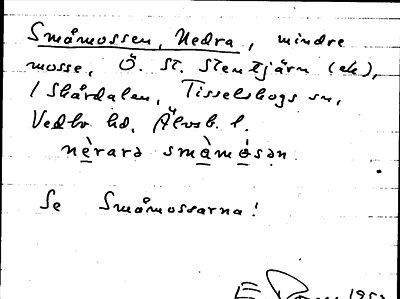 Småmossen, Nedra, mindre
mosse, Ö. St. Stentjärn (ek),
i Skårdalen, Tisselskogs sn,
Vedbo hd, Älvsb. l.
nèrarə smàmósən
Se Småmossarna!